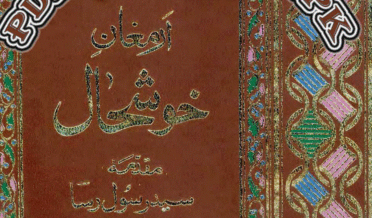 ارمغانِ
خوشحال
مقدمه
سید رسول رسا